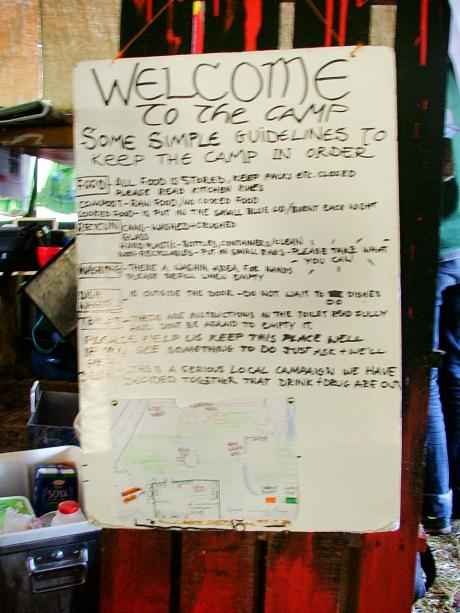 WELCOME
To The CAMP
SOME SIMPLE GUIDELINES TO
KEEP THE CAMP IN ORDER
FOOD - ALL FOOD IS STORED, KEEP PACKS etc. CLOSED
PLEASE READ KITCHEN RULES
COMPOST - RAW FOOD / NO COOKED FOOD
COOKED FOOD - IS PUT IN THE SMALL BLUE / BURNT EACH NIGHT
CANS - WASHED + CRUSHED
GLASS
HARD PLASTIC - BOTTLES, CONTAINERS / CLEAN
NON-RECYCLABLES - PUT IN SMALL BAGS - PLEASE TAKE WHAT
YOU CAN
WASHING - THERE A WASHIN AREA FOR HANDS
PLEASE REFILL WHEN EMPTY
IS OUTSIDE THE DOOR - DO NOT WAIT TO DISHES
DO
- THERE ARE INSTRUCTIONS IN THE TOILET READ FULLY
AND DONT BE AFRAID TO EMPTY IT
PLEASE HELP US KEEP THIS PLACE WELL
IF YOU SEE SOMETHING TO DO JUST ASK + WE'LL
THIS A SERIOUS LOCAL CAMPAIGN WE HAVE
DECIDED TOGETHER THAT DRINK + DRUG ARE OUT